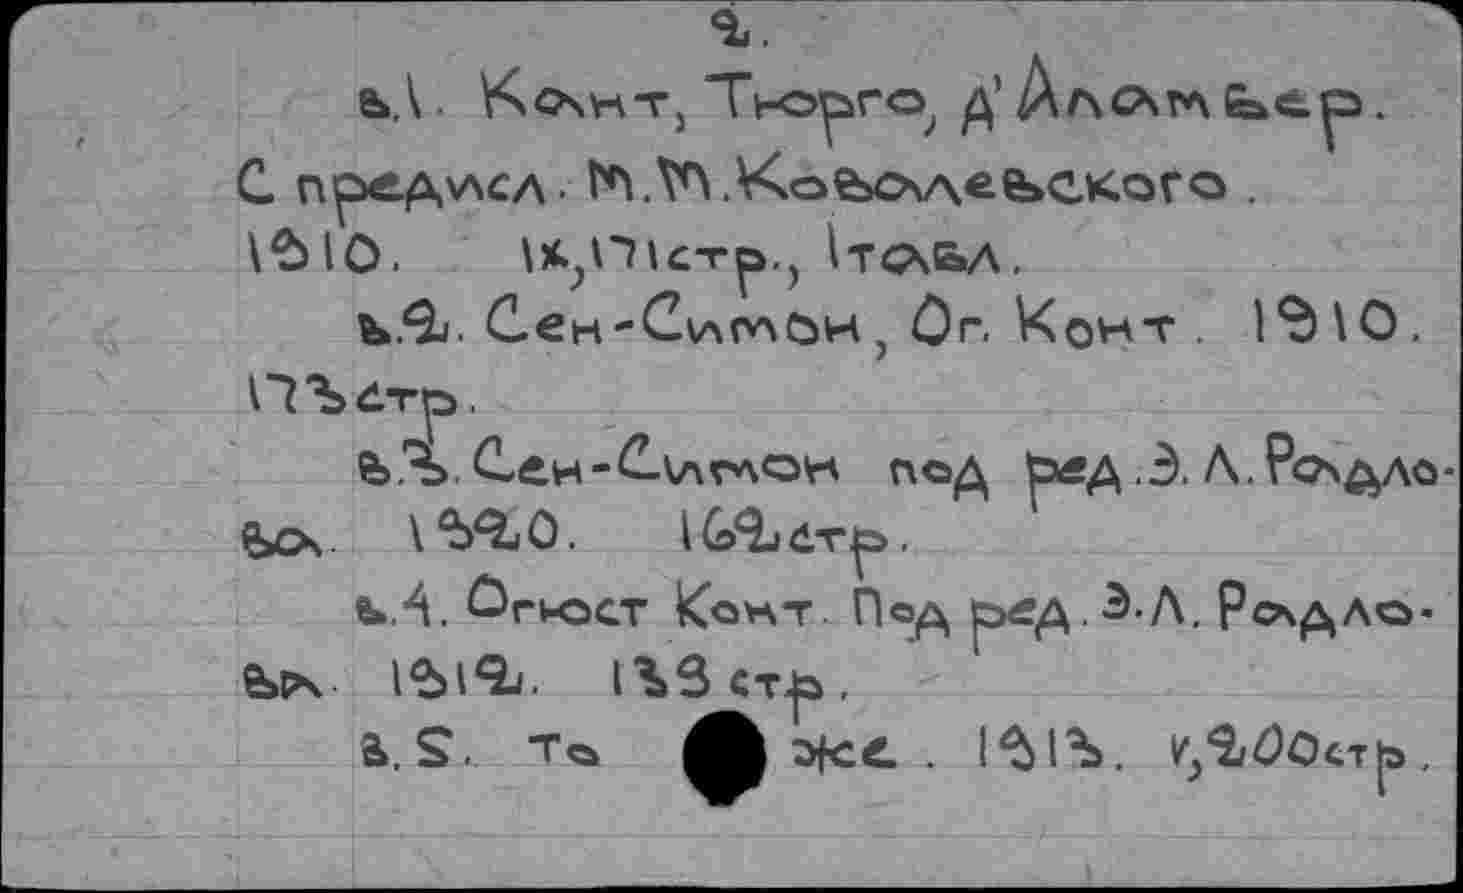 2.
в.1. Кант, Тюрго, д'Аламбер.
С предисл. М.М.Ковалевского.
1910. IX,171стр., 1табл.
в.2. Сен-Симон, Ог. Конт. 1910.
173стр.
в.3. Сен-Симон под ред.Э.Л.Радло-
ва 1920. 162стр.
в.4. Огюст Конт. Под ред.Э.Л.Радло-
ва 1912. 138 стр.
в.5. То же. 1913. V,200стр.